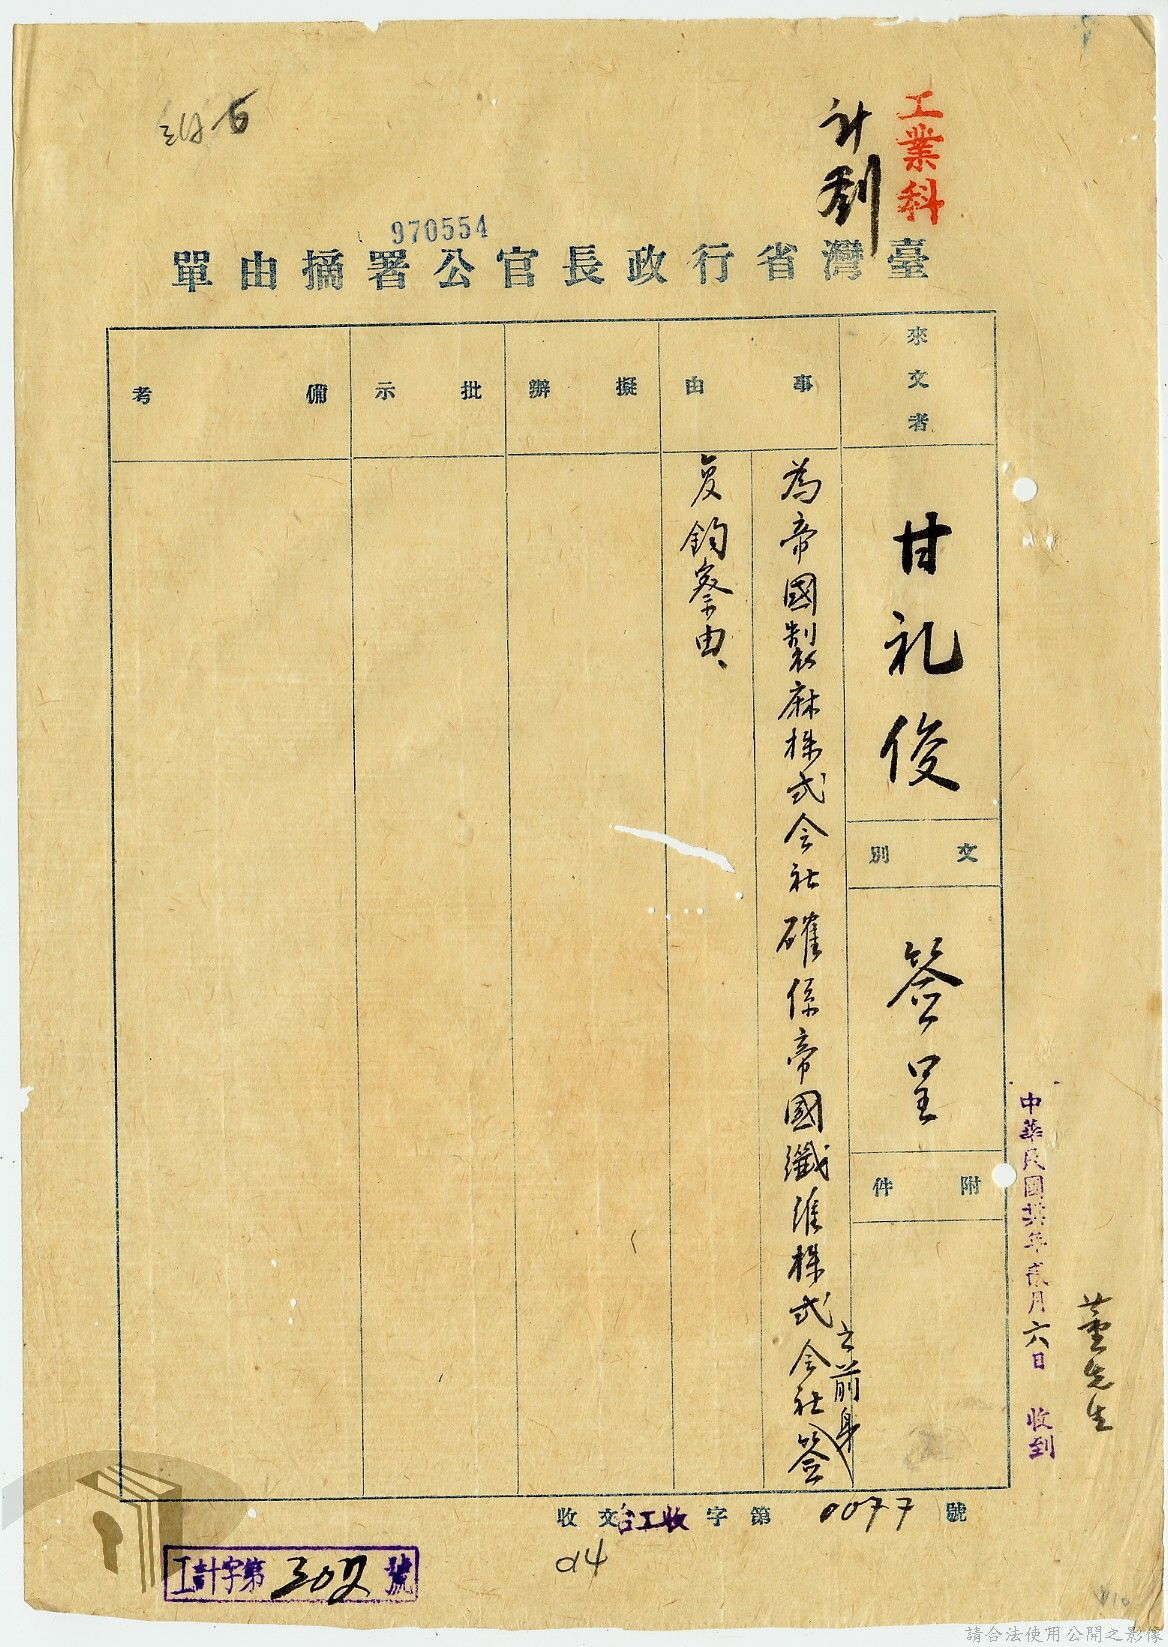 工業科
計劃
970554
臺灣省行政長官公署摘由單
來文者
甘礼俊
文別
簽呈
附件
事由
為帝國製麻株式会社確係帝國纖維株式会社之前身簽
复鈞察由、
擬辦
批示
備考
中華民國卅六年貳月六日 收到
董先生
收文台工收字第0077號
d4
工計字第307號
請合法使用公開之影像